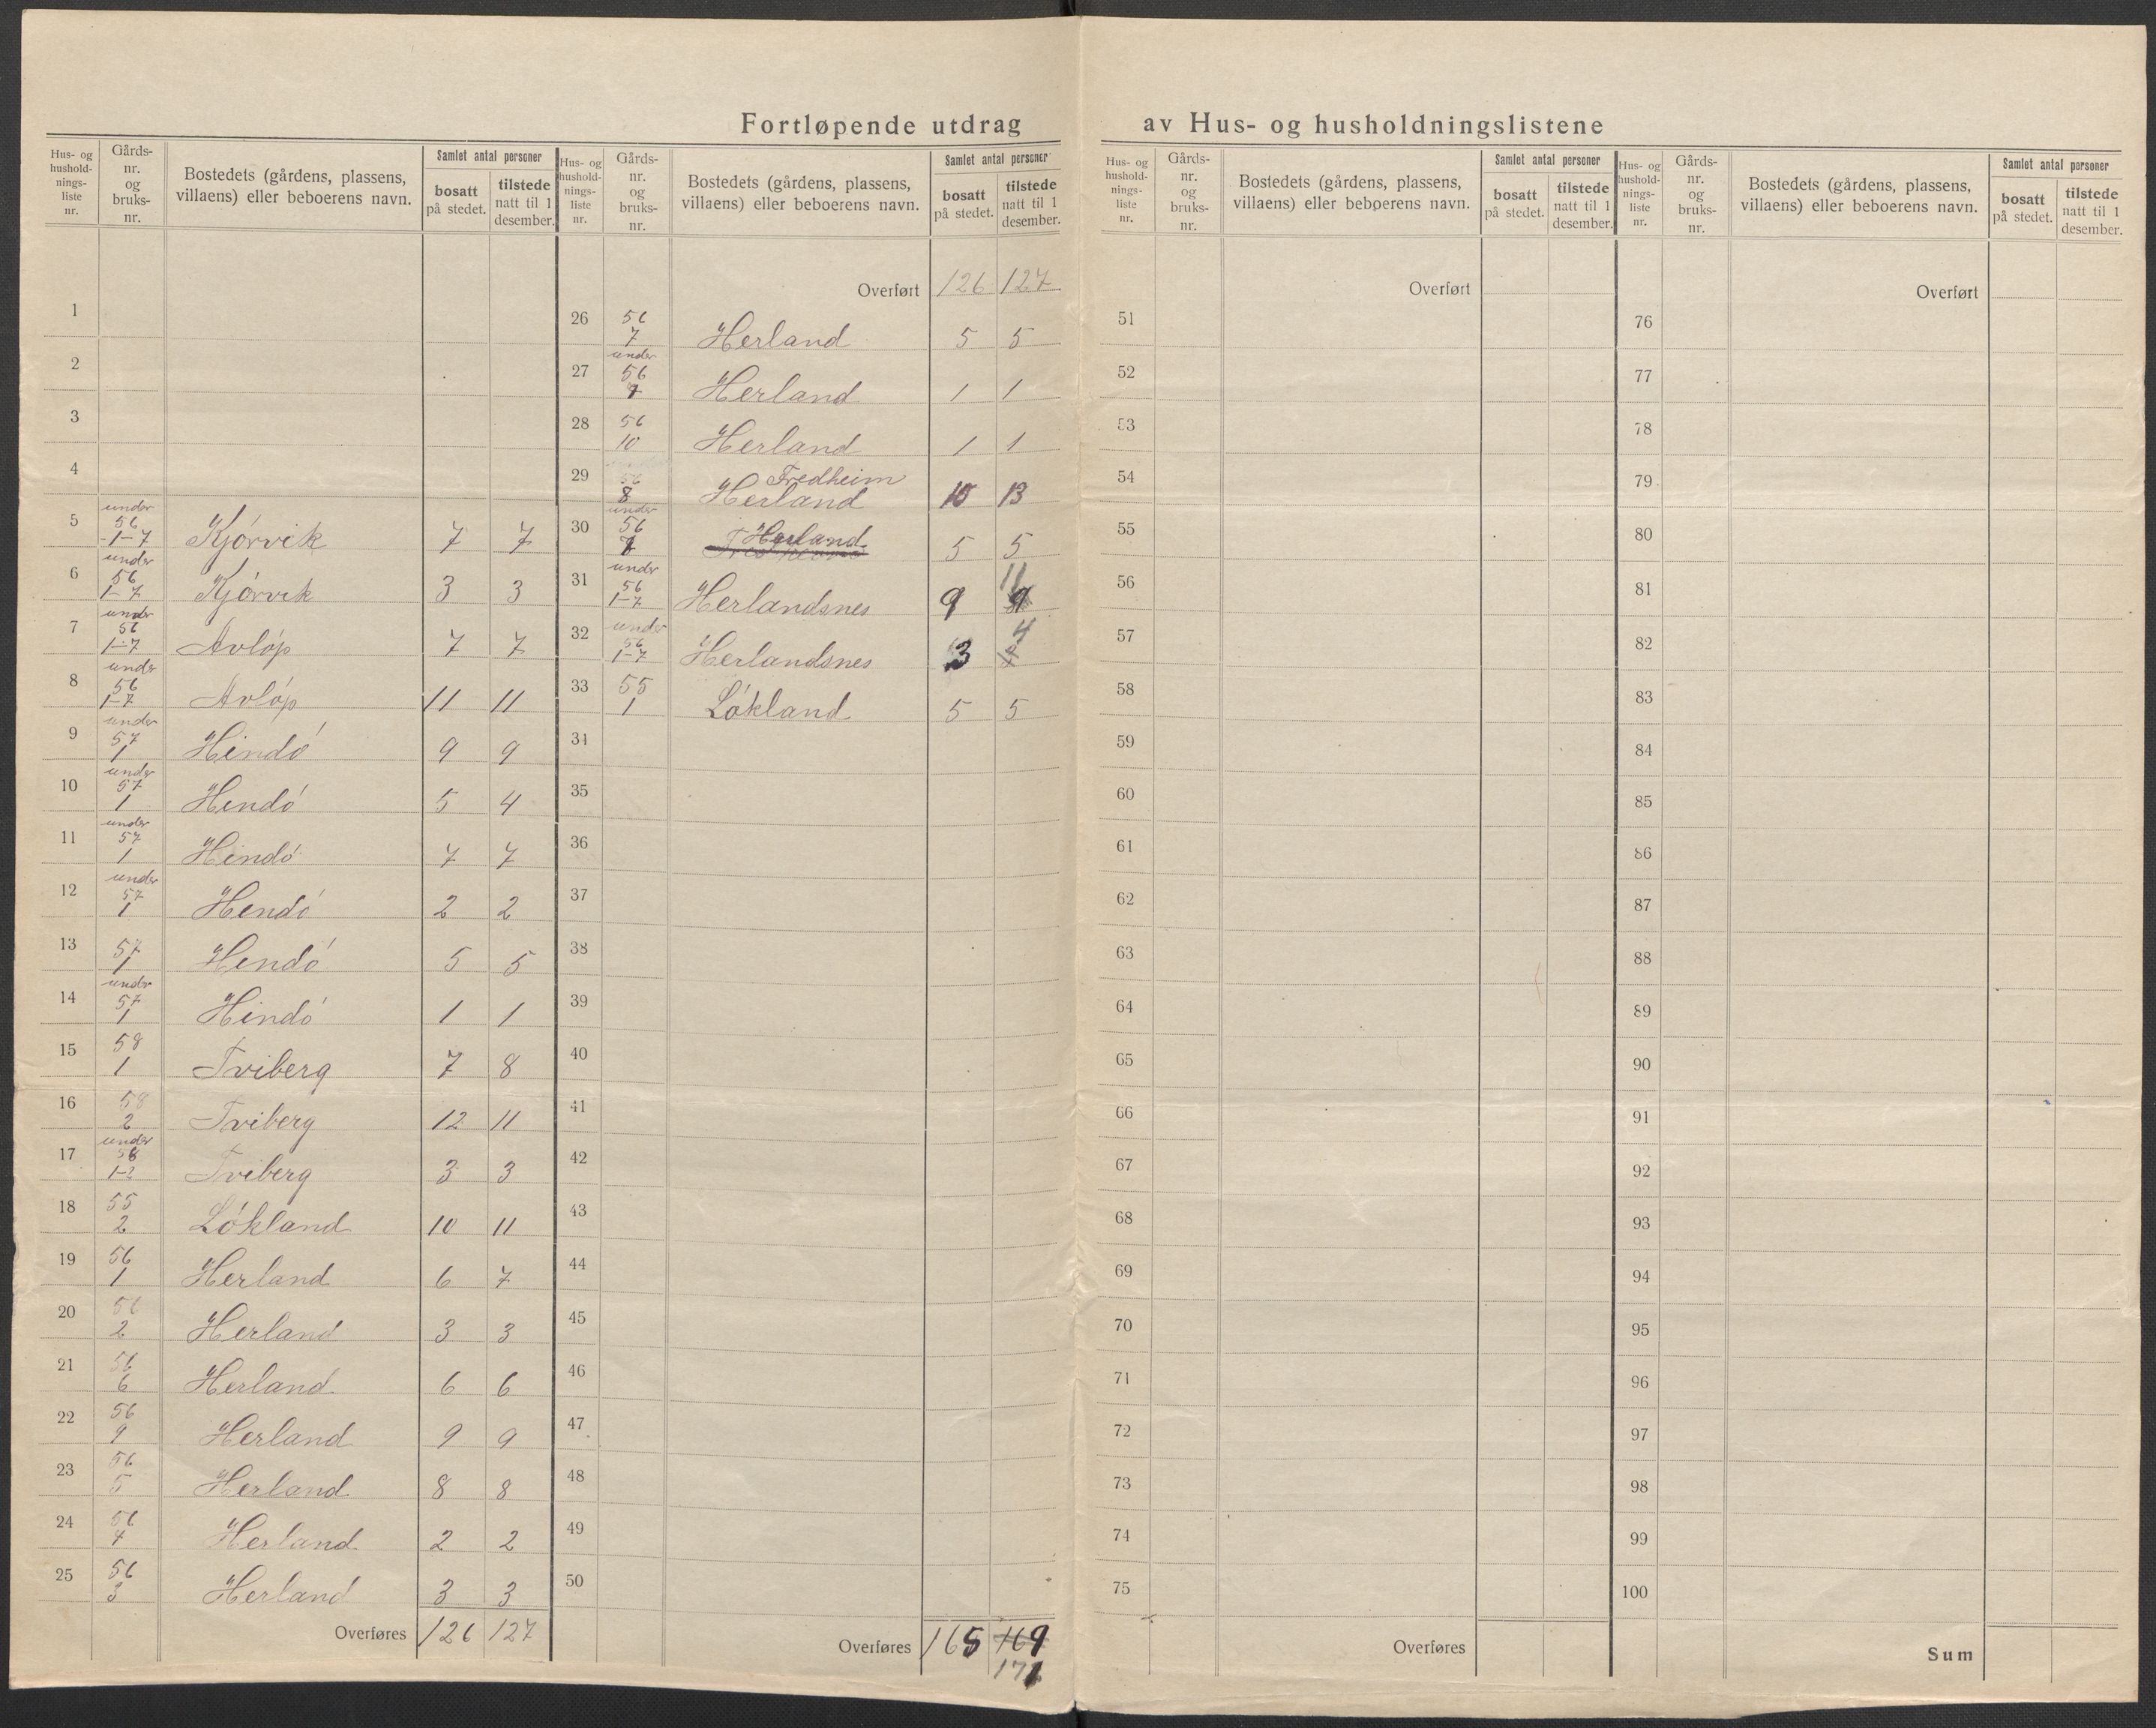 Fortløpende utdrag av Hus- og husholdningslistene
Hus- og husholdnings-liste nr. Gårds-nr. og bruks-nr. Bostedets (gårdens, plassens, villaens) eller beboerens navn. Samlet antal personer bosatt på stedet. tilstede natt til 1 desember.
1
2
3
4
5 under 56 1-7 Kjórvik 7 7
6 under 56 1-7 Kjórvik 3 3
7 under 56 1-7 Avlóp 7 7
8 under 56 1-7 Avlóp 11 11
9 under 57 1 Hindó 9 9
10 under 57 1 Hindó 5 4
11 under 57 1 Hindó 7 7
12 under 57 1 Hindó 2 2
13 57 1 Hindó 5 5
14 under 57 1 Hindó 1 1
15 58 1 Tviberg 7 8
16 58 2 Tviberg 12 11
17 under 58 1-2 Tviberg 3 3
18 55 2 Lókland 10 11
19 56 1 Herland 6 7
20 56 2 Herland 3 3
21 56 6 Herland 6 6
22 56 9 Herland 9 9
23 56 5 Herland 8 8
24 56 4 Herland 2 2
25 56 3 Herland 3 3
Overføres 126 127
Hus- og husholdnings-liste nr. Gårds-nr. og bruks-nr. Bostedets (gårdens, plassens, villaens) eller beboerens navn. Samlet antal personer bosatt på stedet. tilstede natt til 1 desember.
Overført 126 127
26 56 7 Herland 5 5
27 under 56 7 Herland 1 1
28 56 10 Herland 1 1
29 56 8 Fredheim Herland 10 13
30 under 56 Herland 5 5
31 under 56 1-7 Herlandsnes 9 11
32 under 56 1-7 Herlandsnes 3 4
33 55 1 Lókland 5 5
34
35
36
37
38
39
40
41
42
43
44
45
46
47
48
49
50
Overføres 165 169
171
Hus- og husholdnings-liste nr. Gårds-nr. og bruks-nr. Bostedets (gårdens, plassens, villaens) eller beboerens navn. Samlet antal personer bosatt på stedet. tilstede natt til 1 desember.
Overført
51
52
53
54
55
56
57
58
59
60
61
62
63
64
65
66
67
68
69
70
71
72
73
74
75
Overføres
Hus- og husholdnings-liste nr. Gårds-nr. og bruks-nr. Bostedets (gårdens, plassens, villaens) eller beboerens navn. Samlet antal personer bosatt på stedet. tilstede natt til 1 desember.
Overført
76
77
78
79
80
81
82
83
84
85
86
87
88
89
90
91
92
93
94
95
96
97
98
99
100
Sum